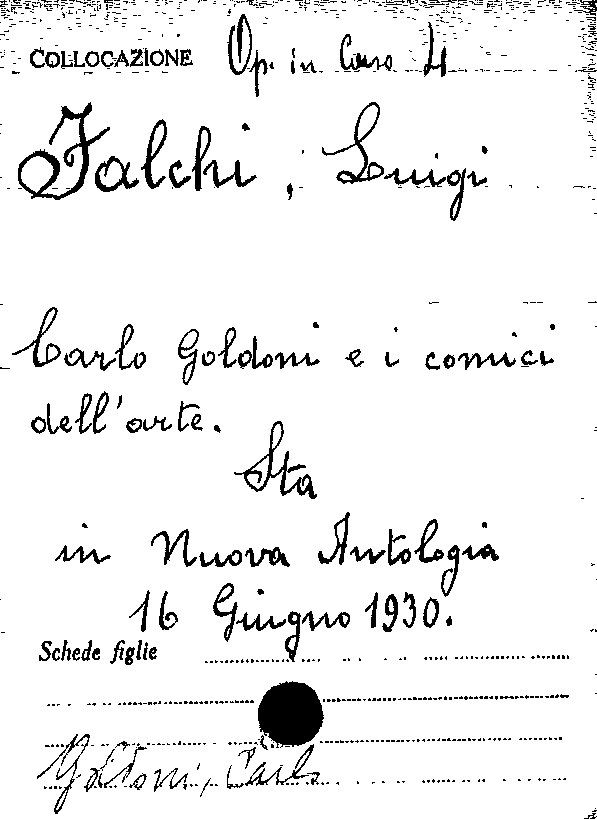 COLLOCAZIONE Op. in Corso 4
Falchi, Luigi
Carlo Goldoni e i comici
dell'arte.
Sta
in Nuova Antologia
16 Giugno 1930.
Schede figlie
Goldoni, Carlo